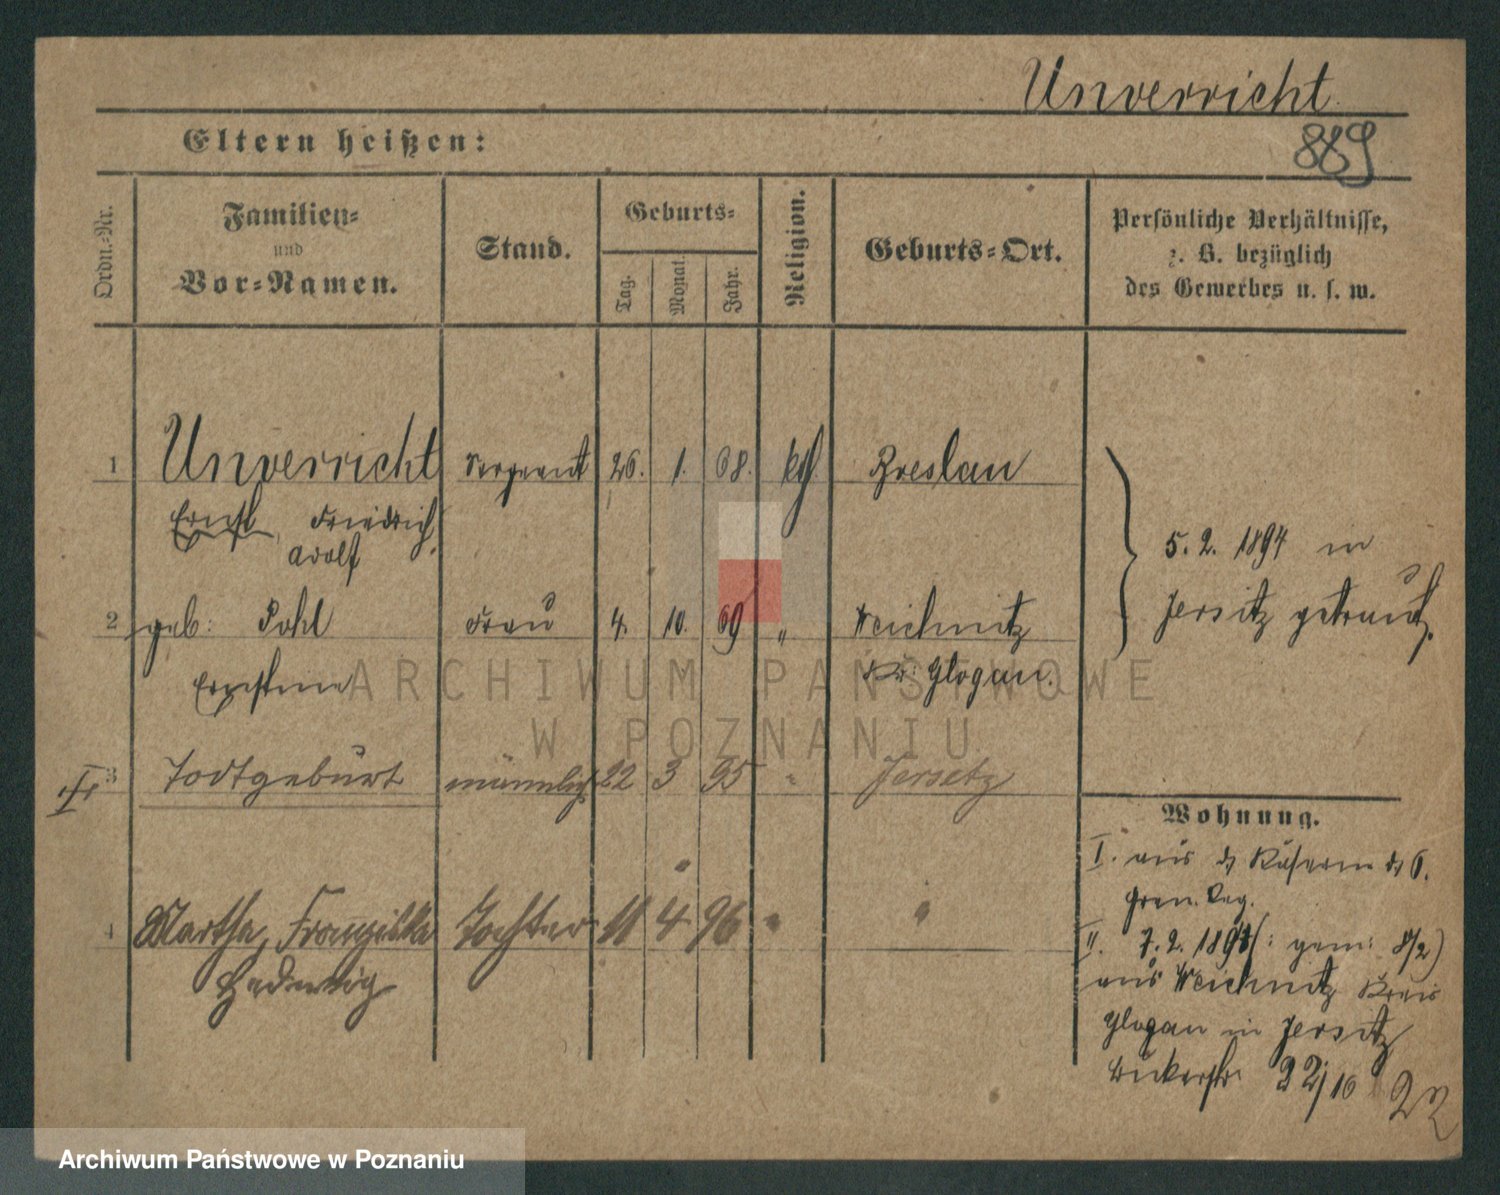 Unverricht
889
Eltern heißen:
Ordn.-Nr.
Familien-
und
Vor-Namen.
Stand.
Geburts-
Tag.
Monat.
Jahr.
Religion.
Geburts-Ort.
Persönliche Verhältnisse,
z. B. bezüglich
des Gewerbes u. s. w.
1 Unverricht Sergeant 26. 1. 68. kth Breslau
Ernst Friedrich
Adolf
5. 2. 1894 in
Jersitz getraut.
2 geb: Pohl Frau 4. 10. 69 " Weichnitz
Ernstine Kr. Glogau.
3 Todtgeburt männlich 22 3 95 " Jersitz
4 Martha, Franziska Tochter 11 4 96 " "
Hedwig
Wohnung.
I. aus d. Kaserne d. 6.
Gren. Reg.
II. 7. 2. 1894 (: gem: 8/2)
aus Weichnitz Kreis
Glogau in Jersitz
22/10 22
ARCHIWUM PAŃSTWOWE
W POZNANIU
Archiwum Państwowe w Poznaniu